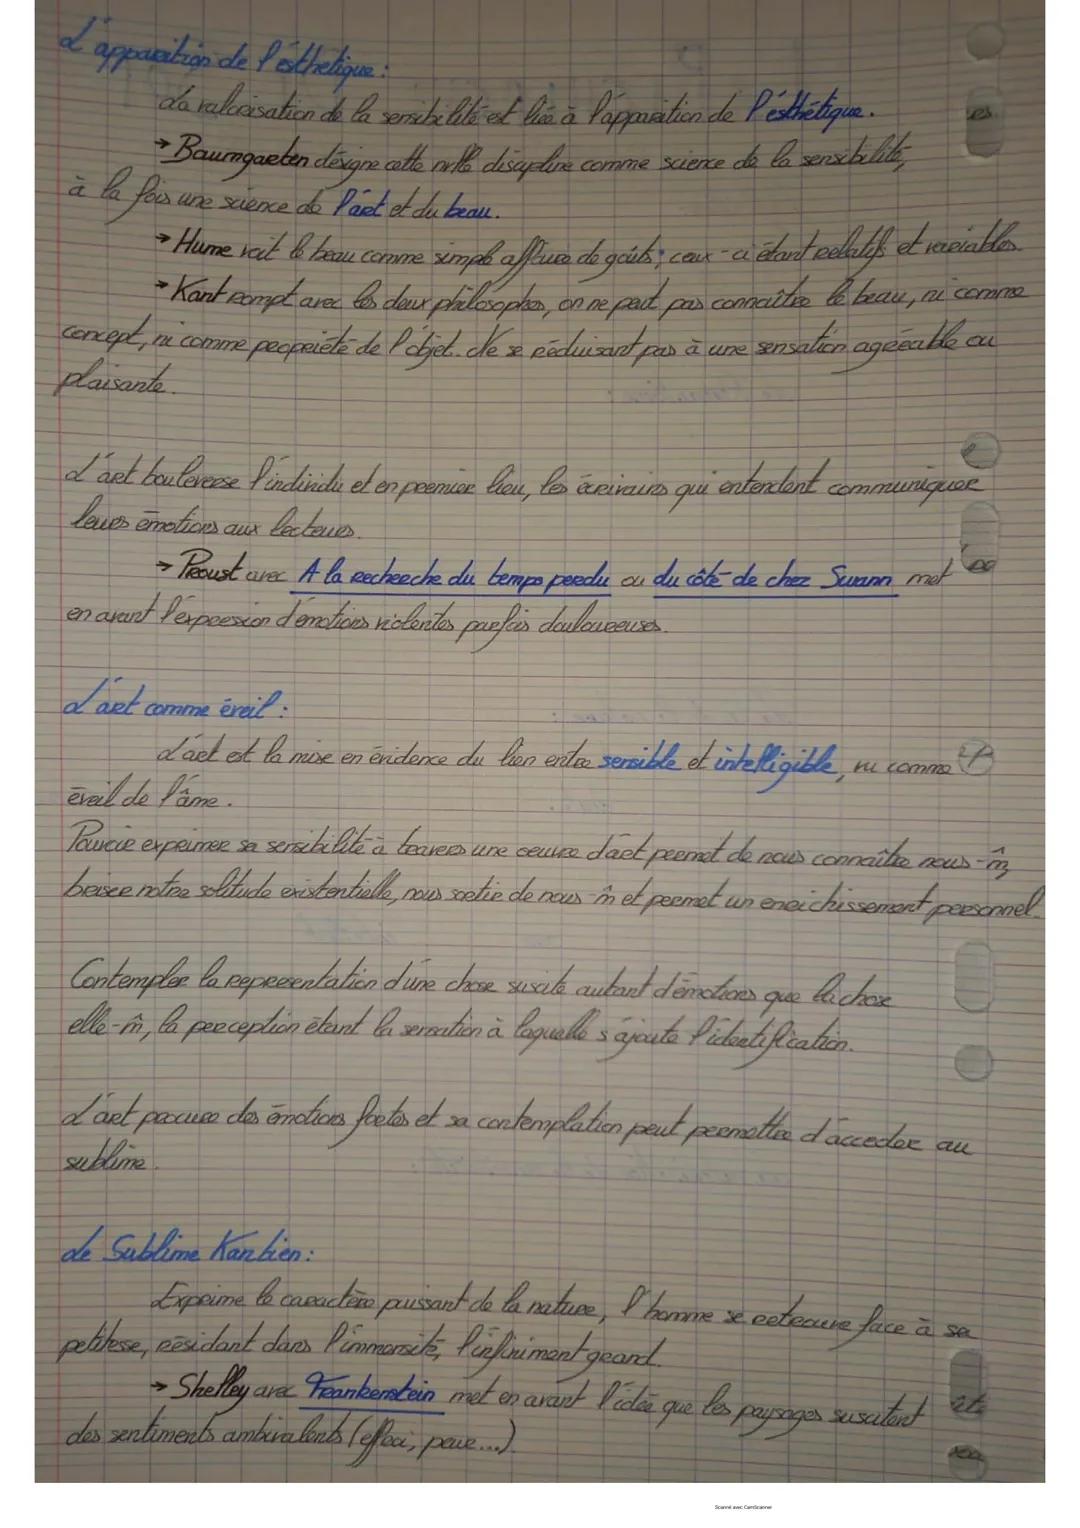 L'apparition de l'esthétique :
La valorisation de la sensibilité est liée à l'apparition de l'esthétique.
→ Baumgarten désigne cette nvlle discipline comme science de la sensibilité,
à la fois une science de l'art et du beau.
→ Hume voit le beau comme simple affaire de goûts ; ceux-ci étant relatifs et variables.
→ Kant rompt avec les deux philosophes, on ne peut pas connaître le beau, ni comme
concept, ni comme propriété de l'objet. Ne se réduisant pas à une sensation agréable ou
plaisante.
L'art bouleverse l'individu et en premier lieu, les écrivains qui entendent communiquer
leurs émotions aux lecteurs.
→ Proust avec A la recherche du temps perdu ou du côté de chez Swann met
en avant l'expression d'émotions violentes parfois douloureuses.
L'art comme éveil :
L'art est la mise en évidence du lien entre sensible et intelligible, vu comme
éveil de l'âme.
Pouvoir exprimer sa sensibilité à travers une oeuvre d'art permet de nous connaître nous-m̂,
briser notre solitude existentielle, nous sortir de nous-m̂ et permet un enrichissement personnel.
Contempler la représentation d'une chose suscite autant d'émotions que la chose
elle-m̂, la perception étant la sensation à laquelle s'ajoute l'identification.
L'art procure des émotions fortes et sa contemplation peut permettre d'accéder au
sublime.
Le Sublime Kantien :
Exprime le caractère puissant de la nature, l'homme se retrouve face à sa
petitesse, résidant dans l'immensité, l'infiniment grand.
→ Shelley avec Frankenstein met en avant l'idée que les paysages suscitent
des sentiments ambivalents (effroi, peur...).
Scanné avec CamScanner